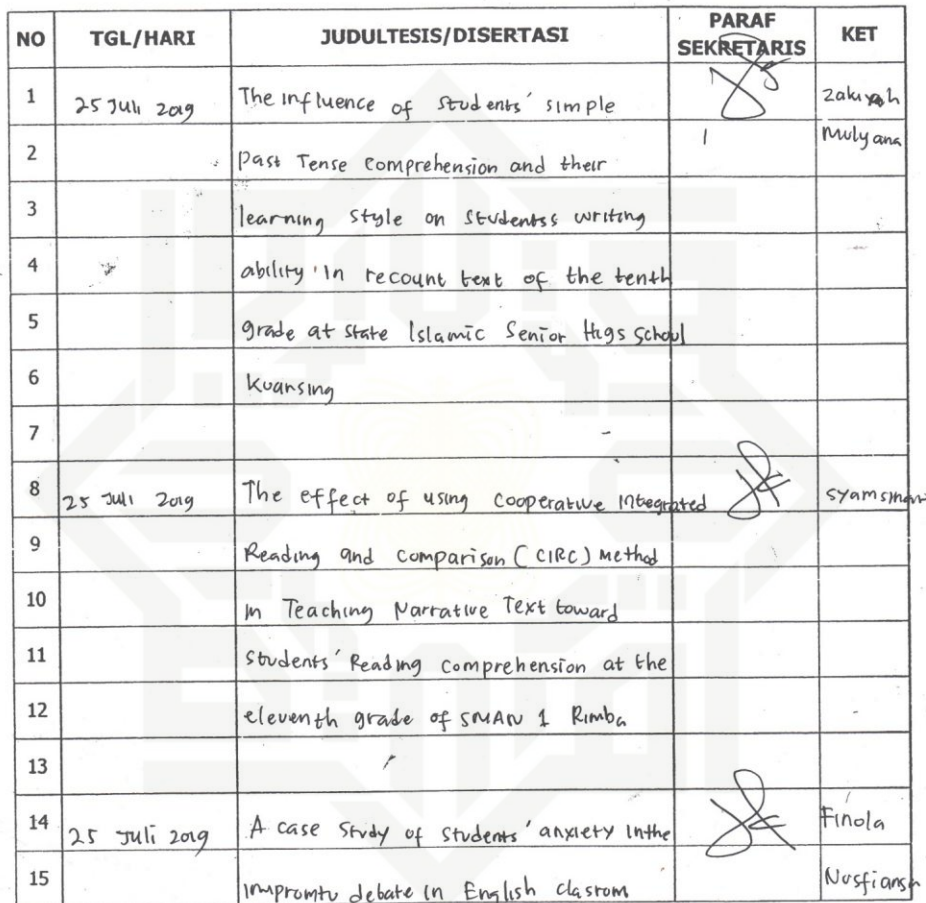 NO TGL/HARI JUDULTESIS/DISERTASI PARAF SEKRETARIS KET
1 25 Juli 2019 The influence of students' simple zakiyah
2 past Tense comprehension and their Mulyana
3 learning style on studentss writing
4 ability in recount text of the tenth
5 grade at state Islamic Senior Higs School
6 Kuansing
7
8 25 Juli 2019 The effect of using cooperative integrated
9 Reading and comparison (CIRC) Method
10 in Teaching Narrative Text toward
11 students' Reading comprehension at the
12 eleventh grade of SMAN 1 Rimba
13
14 25 Juli 2019 A case study of students' anxiety inthe Finola
15 impromtu debate in English clasrom